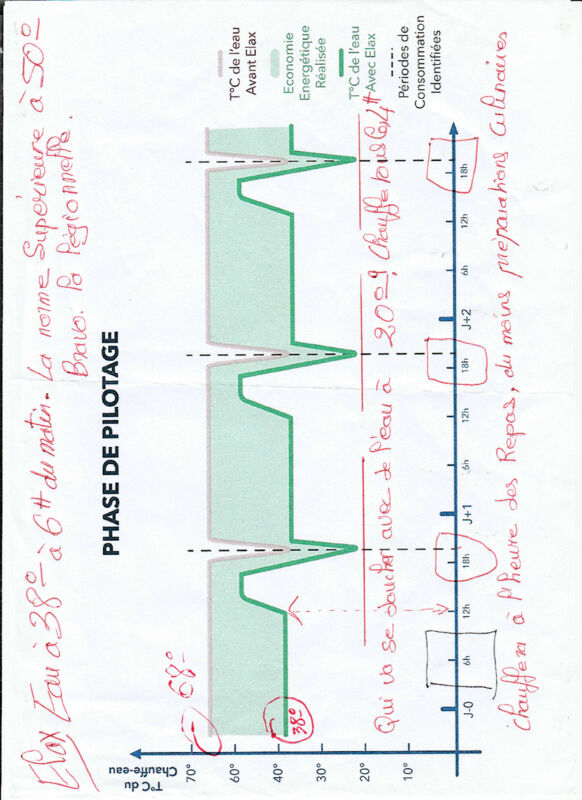 Elax Eau à 38° à 6H du matin. La norme Supérieure à 50°
Bravo. La Légionnelle.
PHASE DE PILOTAGE
T°C de l'eau
Avant Elax
Economie
Energétique
Réalisée
T°C de l'eau
Avec Elax
Périodes de
Consommation
Identifiées
T°C du
Chauffe-eau
70°
60°
50°
40°
30°
20°
10°
68°
38°
Qui va se doucher avec de l'Eau à 20°, chauffe tous les
J-0
6h
12h
18h
J+1
6h
12h
18h
J+2
6h
12h
18h
chauffera à l'heure des Repas, du moins préparations Culinaires